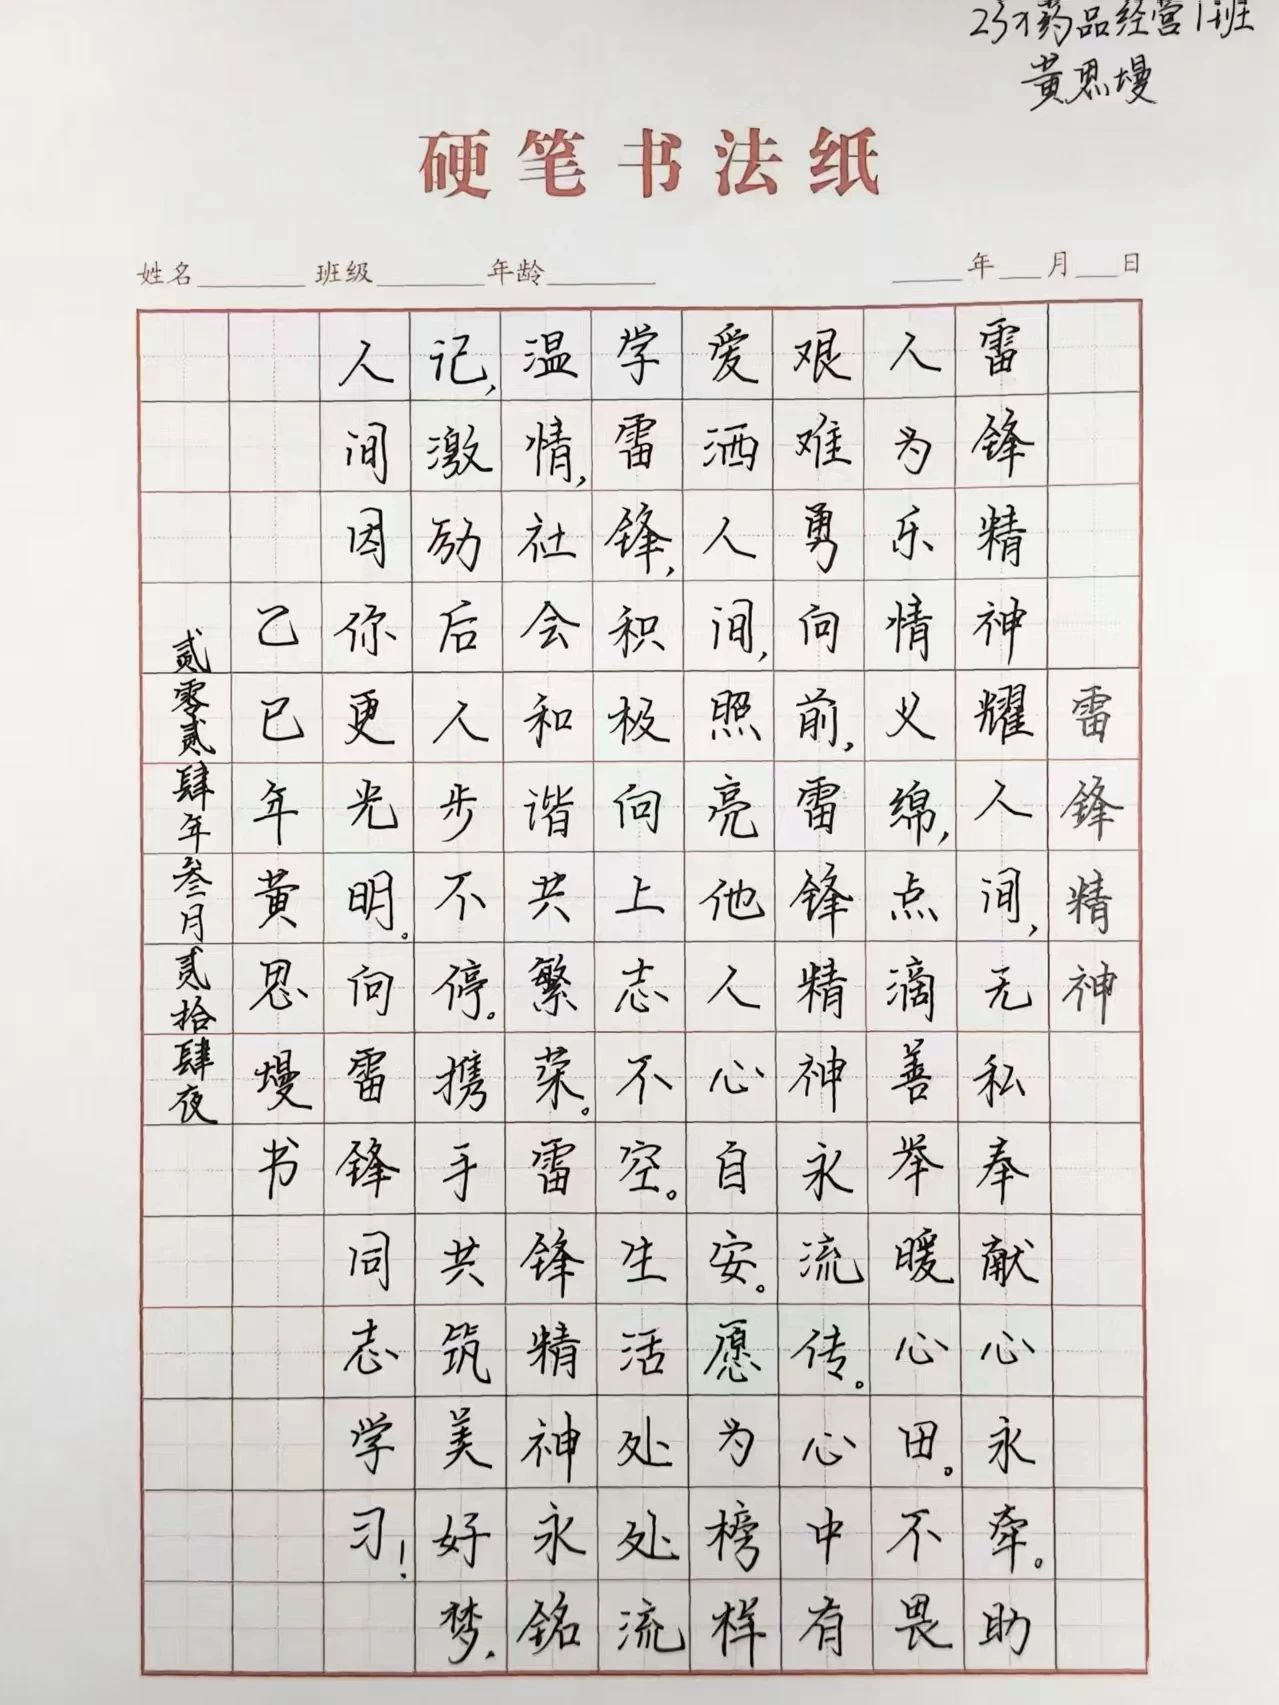 药品经营1班
黄思墁
硬笔书法纸
姓名 班级 年龄 年 月 日
雷锋精神
雷锋精神耀人间,无私奉献心永牵。助
人为乐情义绵,点滴善举暖心田。不畏
艰难勇向前,雷锋精神永流传。心中有
爱洒人间,照亮他人心自安。愿为榜样
学雷锋,积极向上志不空。生活处处流
温情,社会和谐共繁荣。雷锋精神永铭
记,激励后人步不停。携手共筑美好梦,
人间因你更光明。向雷锋同志学习!
己已年黄思墁书
贰零贰肆年叁月贰拾肆夜